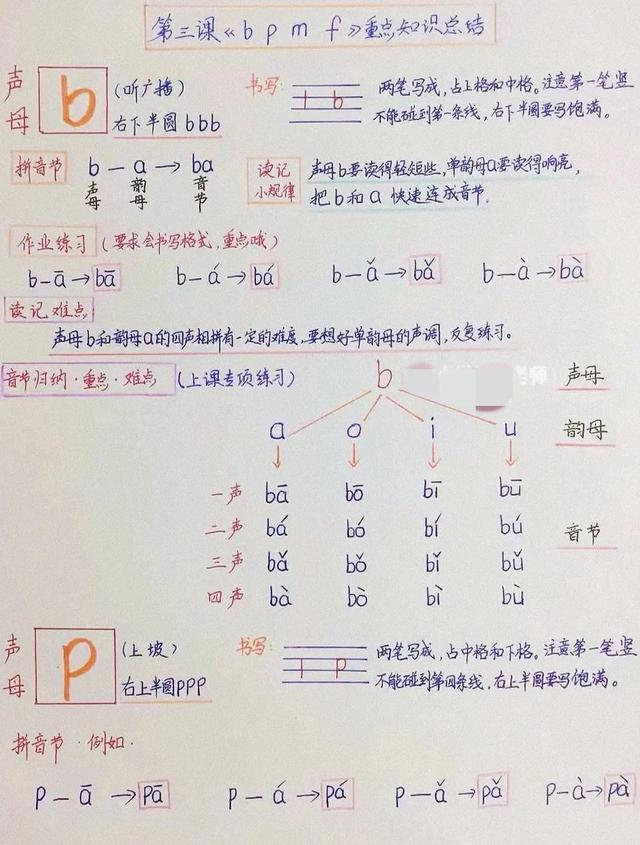 第三课《b p m f》重点知识总结
声母 b (听广播)
右下半圆 bbb
书写: b 两笔写成,占上格和中格。注意第一笔竖
不能碰到第一条线,右下半圆要写饱满。
拼音节 b — a → ba
声母 韵母 音节
读记小规律 声母b要读得轻短些,单韵母a要读得响亮,
把b和a 快速连成音节.
作业练习 (要求会书写格式,重点哦)
b-ā→bā b-á→bá b-ǎ→bǎ b-à→bà
读记难点
声母b和韵母a的四声相拼有一定的难度,要想好单韵母的声调,反复练习。
音节归纳·重点·难点 (上课专项练习) b 师 声母
a o i u 韵母
一声 bā bō bī bū
二声 bá bó bí bú 音节
三声 bǎ bǒ bǐ bǔ
四声 bà bò bì bù
声母 p (上坡)
右上半圆PPP
书写: p 两笔写成,占中格和下格。注意第一笔竖
不能碰到第四条线,右上半圆要写饱满。
拼音节·例如·
p — ā → pā p — á → pá p — ǎ → pǎ p — à → pà